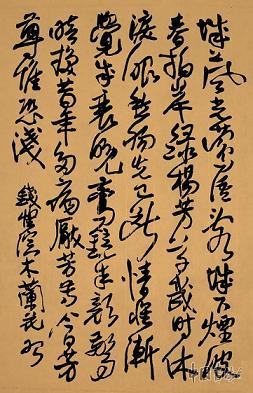 城上風光鶯語亂城下煙波
春拍岸綠楊芳草幾時休
淚眼愁腸先已斷情懷漸
覺成衰晚鸞鏡朱顏驚
暗換昔年多病厭芳尊今日芳
尊惟恐淺 錢惟演木蘭花